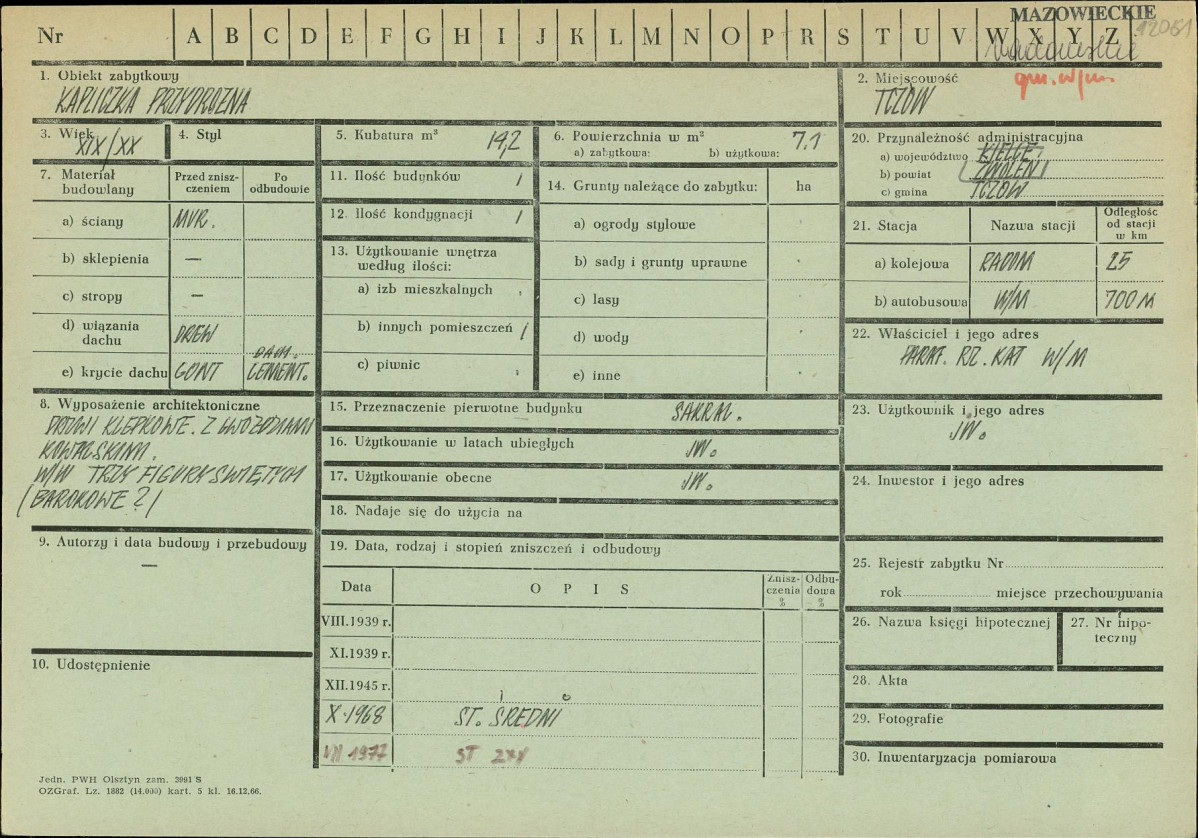 MAZOWIECKIE
Nr A B C D E F G H I J K L M N O P R S T U V W X Y Z
gm. w/m.
1. Obiekt zabytkowy
KAPLICZKA PRZYDROŻNA
2. Miejscowość
TCZÓW
3. Wiek
XIX/XX
4. Styl
5. Kubatura m³ 14,2
6. Powierzchnia w m² 7,1
a) zabytkowa: b) użytkowa:
20. Przynależność administracyjna
a) województwo KIELCE
b) powiat ZWOLEŃ
c) gmina TCZÓW
7. Materiał budowlany
Przed zniszczeniem
Po odbudowie
a) ściany MUR.
b) sklepienia —
c) stropy —
d) wiązania dachu DREW
e) krycie dachu GONT DACH. CEMENT.
11. Ilość budynków 1
12. Ilość kondygnacji 1
13. Użytkowanie wnętrza według ilości:
a) izb mieszkalnych
b) innych pomieszczeń 1
c) piwnic
14. Grunty należące do zabytku: ha
a) ogrody stylowe
b) sady i grunty uprawne
c) lasy
d) wody
e) inne
21. Stacja Nazwa stacji Odległość od stacji w km
a) kolejowa RADOM 25
b) autobusowa W/M 700 M
22. Właściciel i jego adres
PARAF. RZ. KAT W/M
8. Wyposażenie architektoniczne
DRZWI KLEPKOWE. Z GWOŹDZIAMI
KOWALSKIMI.
W/W TRZY FIGURY ŚWIĘTYCH
(BAROKOWE ?)
15. Przeznaczenie pierwotne budynku SAKRAL.
16. Użytkowanie w latach ubiegłych JW.
17. Użytkowanie obecne JW.
18. Nadaje się do użycia na
23. Użytkownik i jego adres
JW.
24. Inwestor i jego adres
9. Autorzy i data budowy i przebudowy
—
19. Data, rodzaj i stopień zniszczeń i odbudowy
Data O P I S Zniszczenia % Odbudowa %
VIII.1939 r.
XI.1939 r.
XII.1945 r.
X.1968 ST. ŚREDNI
VII 1977 ST
10. Udostępnienie
25. Rejestr zabytku Nr
rok miejsce przechowywania
26. Nazwa księgi hipotecznej
27. Nr hipoteczny
28. Akta
29. Fotografie
30. Inwentaryzacja pomiarowa
Jedn. PWH Olsztyn zam. 3991 S
OZGraf. Lz. 1882 (14.000) kart. 5 kl. 16.12.66.